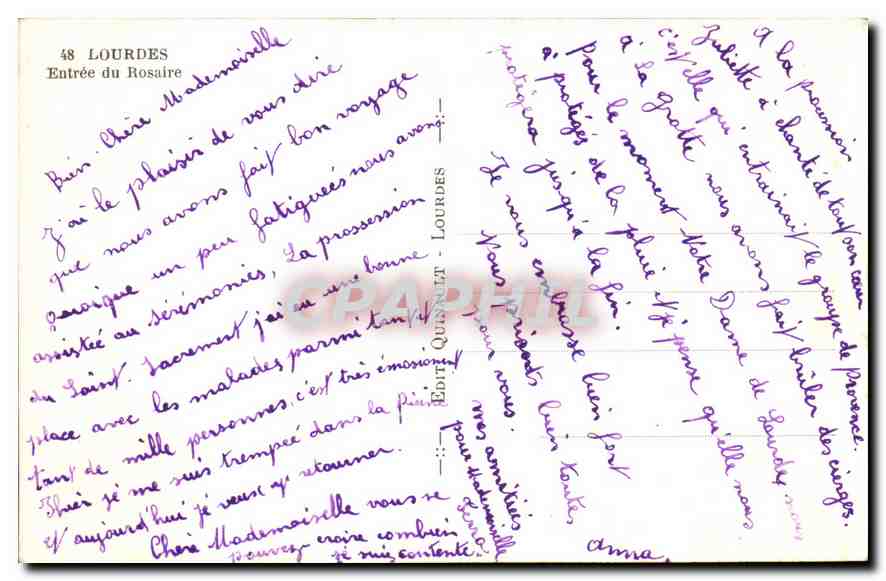 48 LOURDES
Entrée du Rosaire
Bien Chère Mademoiselle
J'ai le plaisir de vous dire
que nous avons fait bon voyage
quoique un peu fatiguées nous avons
assistée au sérémonies, La prossession
du Saint-Sacrement j'ai eu une bonne
place avec les malades parmi tant et
tant de mille personnes, c'est très émosionent
Hier je me suis trempée dans la Picine
et aujourd'hui je veux y retourner.
Chère Mademoiselle vous se
pouvez croire combien
je suis contente.
EDIT. QUINAULT - LOURDES
CPAPHIL
A la procession
Juliette à chanté de tout son cœur
c'est elle qui entrainait le groupe de Provence.
à la grotte nous avons fait brûler des cierges.
pour le moment Notre Dame de Lourdes nous
à protégés de la pluie et je pense qu'elle nous
protégera jusqu'à la fin.
Je vous embrasse bien fort
Nous prions bien toutes
pour vous.
mes amitiées
pour Mademoiselle
Serra
Anna.